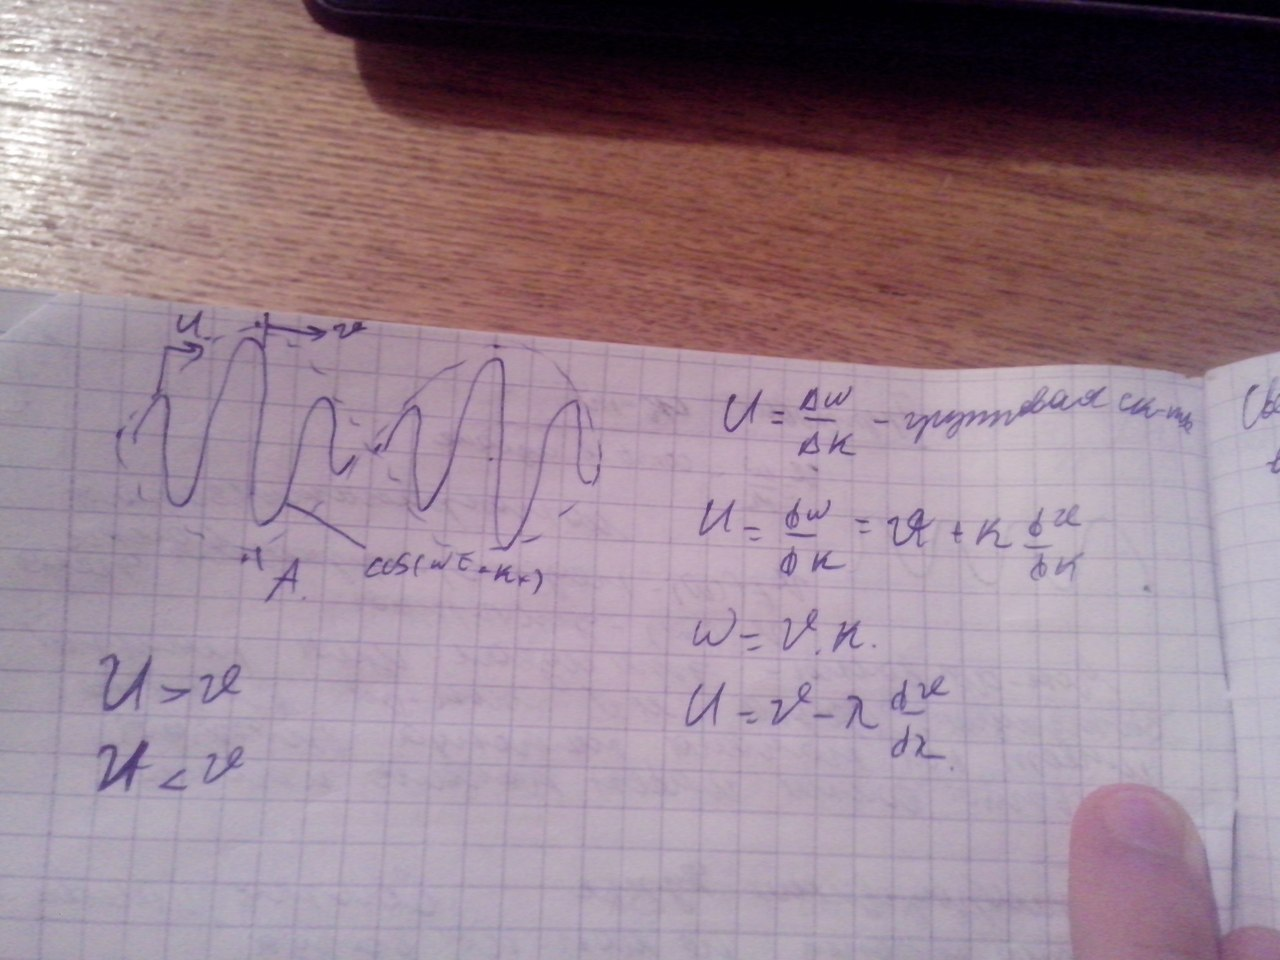 U
v
cos(ωt - kx)
A.
U > v
U < v
U = Δω/Δk - групповая ск-ть
U = dω/dk = v + k dv/dk
ω = v · k.
U = v - λ dv/dλ.